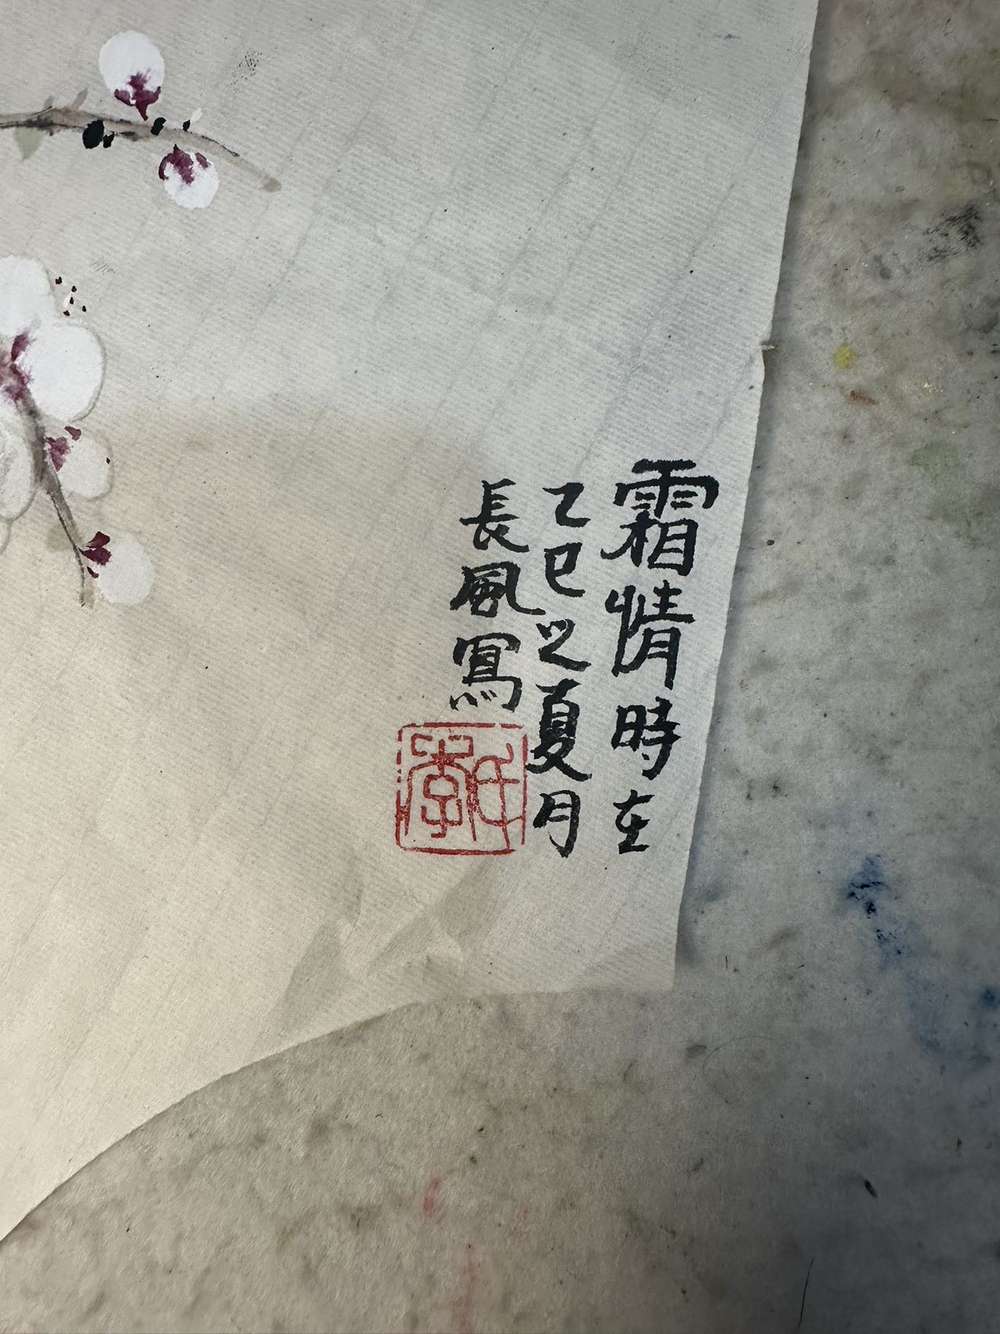 霜情時在
乙巳之夏月
長風寫